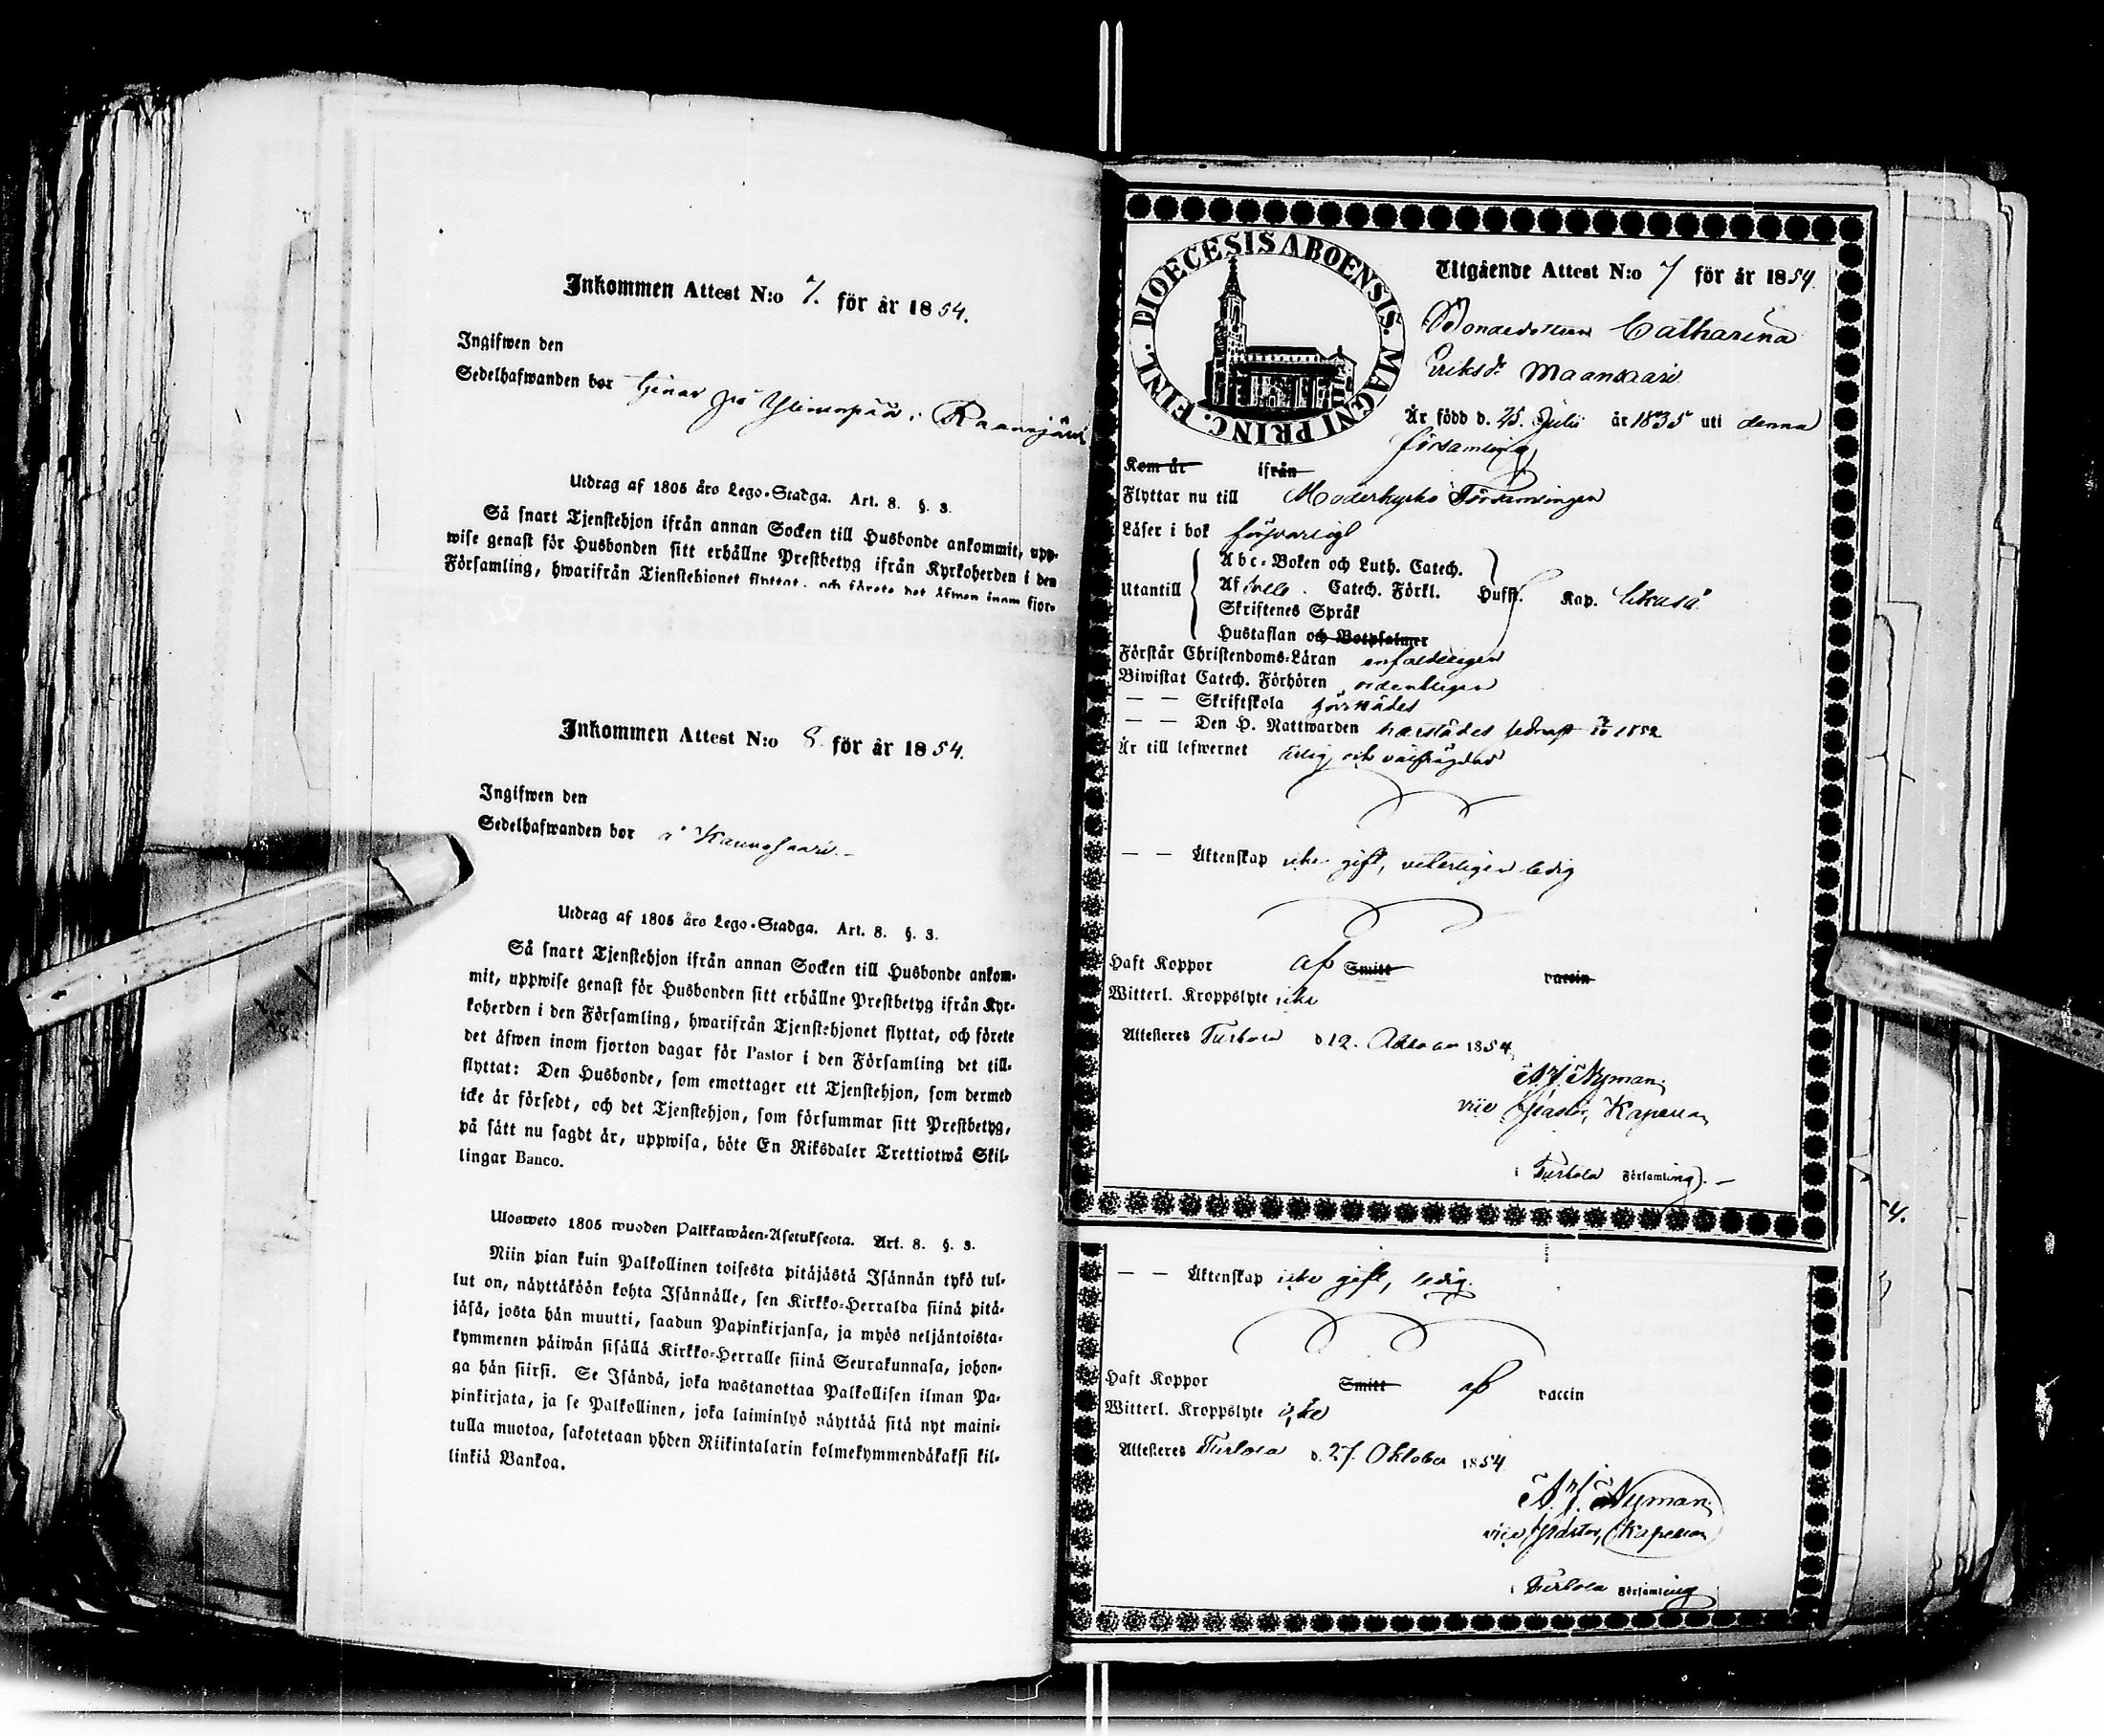 Inkommen Attest N:o 7. för år 1854.
Ingifwen den
Sedelhafwanden bor tjenar på i
Utdrag af 1805 åro Lego-Stadga. Art. 8. §. 3.
Så snart Tjenstehjon ifrån annan Socken till Husbonde ankommit, upp-
wise genast för Husbonden sitt erhållne Prestbetyg ifrån Kyrkoherden i den
Församling, hwarifrån Tjenstehjonet flyttat, och förete det äfwen inom fjor-
Inkommen Attest N:o 8 för år 1854.
Ingifwen den
Sedelhafwanden bor å
Utdrag af 1805 åro Lego-Stadga. Art. 8. §. 3.
Så snart Tjenstehjon ifrån annan Socken till Husbonde ankom-
mit, uppwise genast för Husbonden sitt erhållne Prestbetyg ifrån Kyr-
koherden i den Församling, hwarifrån Tjenstehjonet flyttat, och förete
det äfwen inom fjorton dagar för Pastor i den Församling det till-
flyttat: Den Husbonde, som emottager ett Tjenstehjon, som dermed
icke är försedt, och det Tjenstehjon, som försummar sitt Prestbetyg,
på sätt nu sagdt är, uppwisa, böte En Riksdaler Trettiotwå Skil-
lingar Banco.
Ulosweto 1805 wuoden Palkkawäen-Asetuksesta. Art. 8. §. 3.
Niin pian kuin Palkollinen toisesta pitäjästä Isännän tykö tul-
lut on, näyttäköön kohta Isännälle, sen Kirkko-Herralda siinä pitä-
jäsä, josta hän muutti, saadun Papinkirjansa, ja myös neljäntoista-
kymmenen päiwän sisällä Kirkko-Herralle siinä Seurakunnasa, johon-
ga hän siirsi. Se Isändä, joka wastanottaa Palkollisen ilman Pa-
pinkirjata, ja se Palkollinen, joka laiminlyö näyttää sitä nyt maini-
tulla muotoa, sakotetaan yhden Riikintalarin kolmekymmendäkaksi kil-
linkiä Bankoa.
DIOECESIS ABOENSIS. MAGNI PRINC. FINL.
Utgående Attest N:o 7 för år 1854.
Bondedottren Catharina
Eriksdr Maansaari
Är född d. 25. Julii år 1835 uti denna
församling
Kom år ifrån
Flyttar nu till Moderkyrko Församlingen
Läser i bok försvarligt
Utantill Abc-Boken och Luth. Catech.
Af Catech. Förkl. Hufst. Kap. likaså
Skriftenes Språk
Hustaflan och Botpsalmer
Förstår Christendoms-Läran enfaldeligen
Biwistat Catech. Förhören ordentligen
— — Skriftskola
— — Den H. Nattwarden härstädes sednast 1852
Är till lefwernet ärlig och välfrägdad
— — Äktenskap icke gift, veterligen ledig
Haft Koppor af Smitt vaccin
Witterl. Kroppslyte icke
Attesteres Turtola d 12. 1854
A. J. Nyman,
vice Pastor, Kapellan
i Turtola Församling. —
— — Äktenskap icke gift, ledig.
Haft Koppor Smitt af vaccin
Witterl. Kroppslyte icke
Attesteres Turtola d. 27. Oktober 1854
A. J. Nyman,
vice Pastor, Kapellan
i Turtola Församling